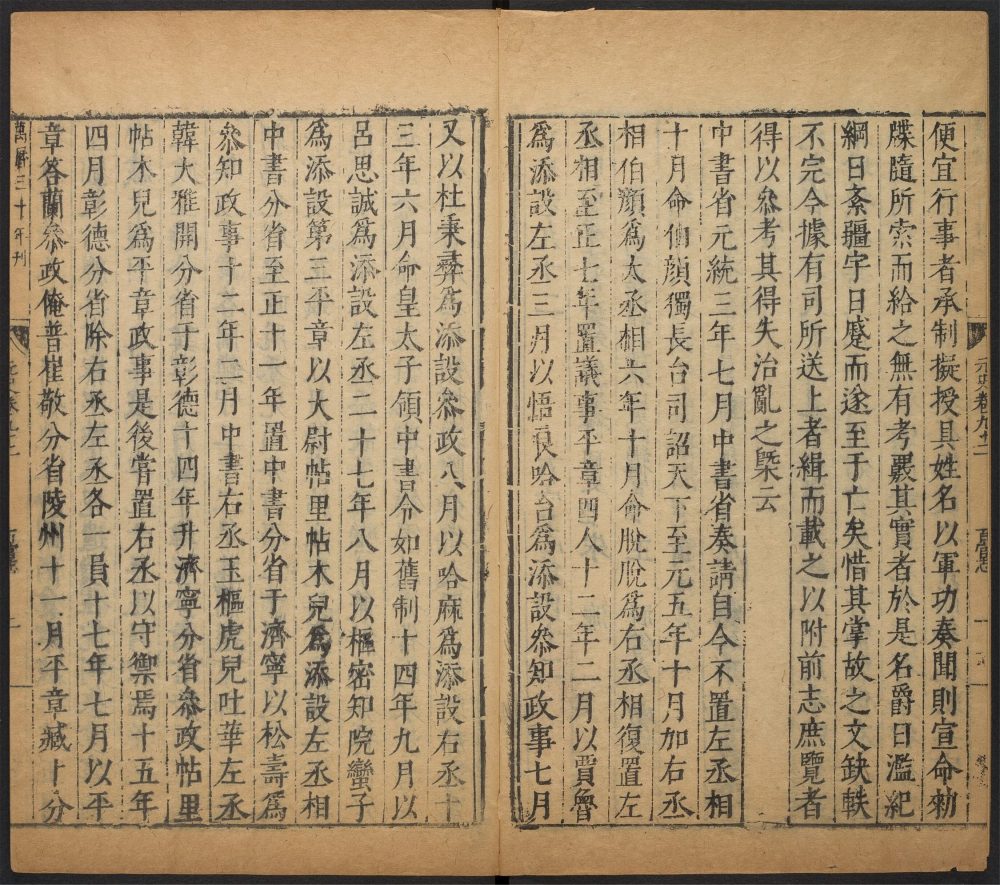 元史卷九十二
百官志
便宜行事者承制擬授具姓名以軍功奏聞則宣命勑
牒隨所索而給之無有考覈其實者於是名爵日濫紀
綱日紊疆宇日蹙而遂至于亡矣惜其掌故之文缺軼
不完今據有司所送上者緝而載之以附前志庶覽者
得以叅考其得失治亂之槩云
中書省元統三年七月中書省奏請自今不置左丞相
十月命伯顏獨長台司詔天下至元五年十月加右丞
相伯顏爲太丞相六年十月命脫脫爲右丞相復置左
丞相至正七年置議事平章四人十二年二月以賈魯
爲添設左丞三月以悟良哈台爲添設叅知政事七月
又以杜秉彞爲添設叅政八月以哈麻爲添設右丞十
三年六月命皇太子領中書令如舊制十四年九月以
呂思誠爲添設左丞二十七年八月以樞密知院蠻子
爲添設第三平章以大尉帖里帖木兒爲添設左丞相
中書分省至正十一年置中書分省于濟寧以松壽爲
叅知政事十二年二月中書右丞玉樞虎兒吐華左丞
韓大雅開分省于彰德十四年升濟寧分省叅政帖里
帖木兒爲平章政事是後嘗置右丞以守禦焉十五年
四月彰德分省除右丞左丞各一員十七年七月以平
章答蘭叅政俺普崔敬分省陵州十一月平章臧卜分
萬曆三十年刊